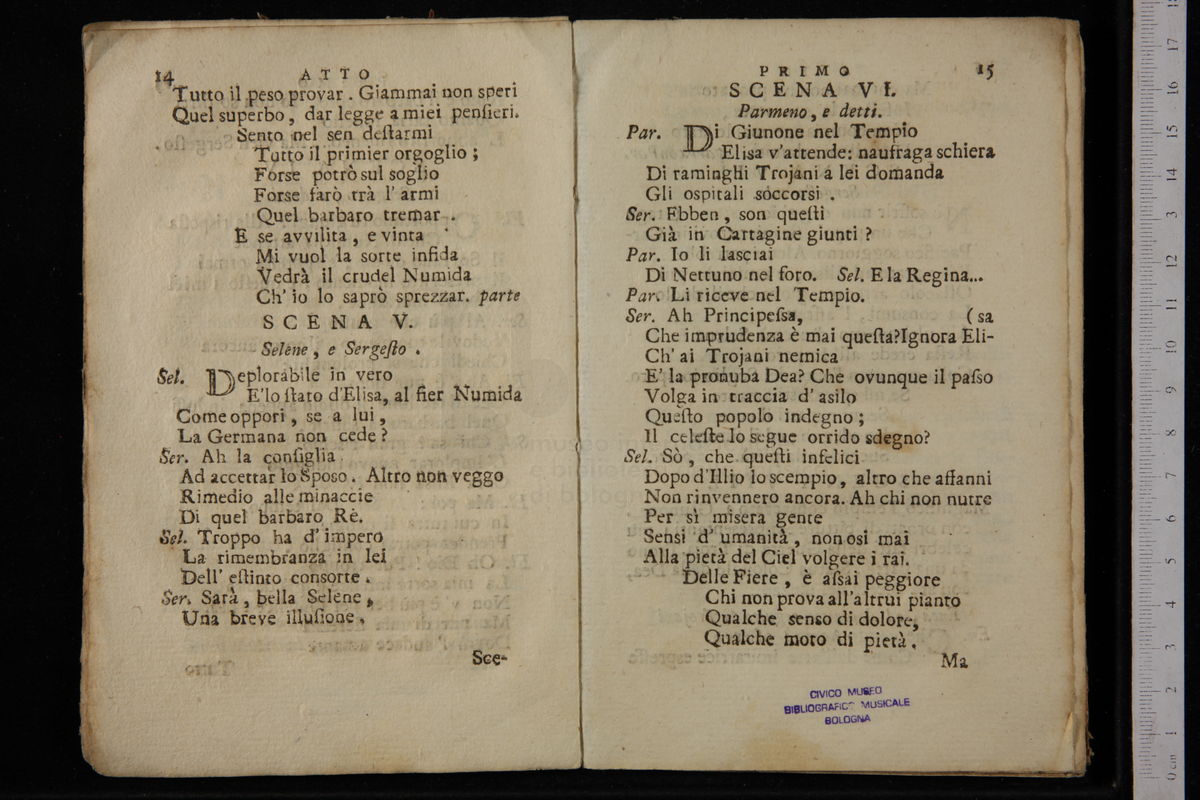 14 ATTO
Tutto il peso provar . Giammai non speri
Quel superbo, dar legge a miei penſieri.
Sento nel sen deſtarmi
Tutto il primier orgoglio ;
Forse potrò sul soglio
Forse farò trà l' armi
Quel barbaro tremar .
E se avvilita , e vinta
Mi vuol la sorte infida
Vedrà il crudel Numida
Ch' io lo saprò sprezzar. parte
SCENA V.
Selène , e Sergeſto .
Sel. Deplorabile in vero
E'lo ſtato d'Elisa, al fier Numida
Come oppori , se a lui ,
La Germana non cede ?
Ser. Ah la conſiglia
Ad accettar lo Sposo . Altro non veggo
Rimedio alle minaccie
Di quel barbaro Rè.
Sel. Troppo ha d' impero
La rimembranza in lei
Dell' eſtinto consorte .
Ser. Sarà , bella Selène ,
Una breve illuſione ,
Sce-
PRIMO 15
SCENA VI.
Parmeno, e detti.
Par. Di Giunone nel Tempio
Elisa v'attende: naufraga schiera
Di raminghi Trojani a lei domanda
Gli ospitali soccorsi .
Ser. Ebben , son queſti
Già in Cartagine giunti ?
Par. Io li lasciai
Di Nettuno nel foro. Sel. E la Regina...
Par. Li riceve nel Tempio.
Ser. Ah Principeſsa, (sa
Che imprudenza è mai queſta?Ignora Eli-
Ch' ai Trojani nemica
E' la pronuba Dea? Che ovunque il paſso
Volga in traccia d' asilo
Queſto popolo indegno ;
Il celeſte lo segue orrido sdegno?
Sel. Sò , che queſti infelici
Dopo d'Illio lo scempio, altro che affanni
Non rinvennero ancora. Ah chi non nutre
Per sì misera gente
Sensi d' umanità , non osi mai
Alla pietà del Ciel volgere i rai.
Delle Fiere , è aſsai peggiore
Chi non prova all'altrui pianto
Qualche senso di dolore,
Qualche moto di pietà .
Ma
CIVICO MUSEO
BIBLIOGRAFICO MUSICALE
BOLOGNA